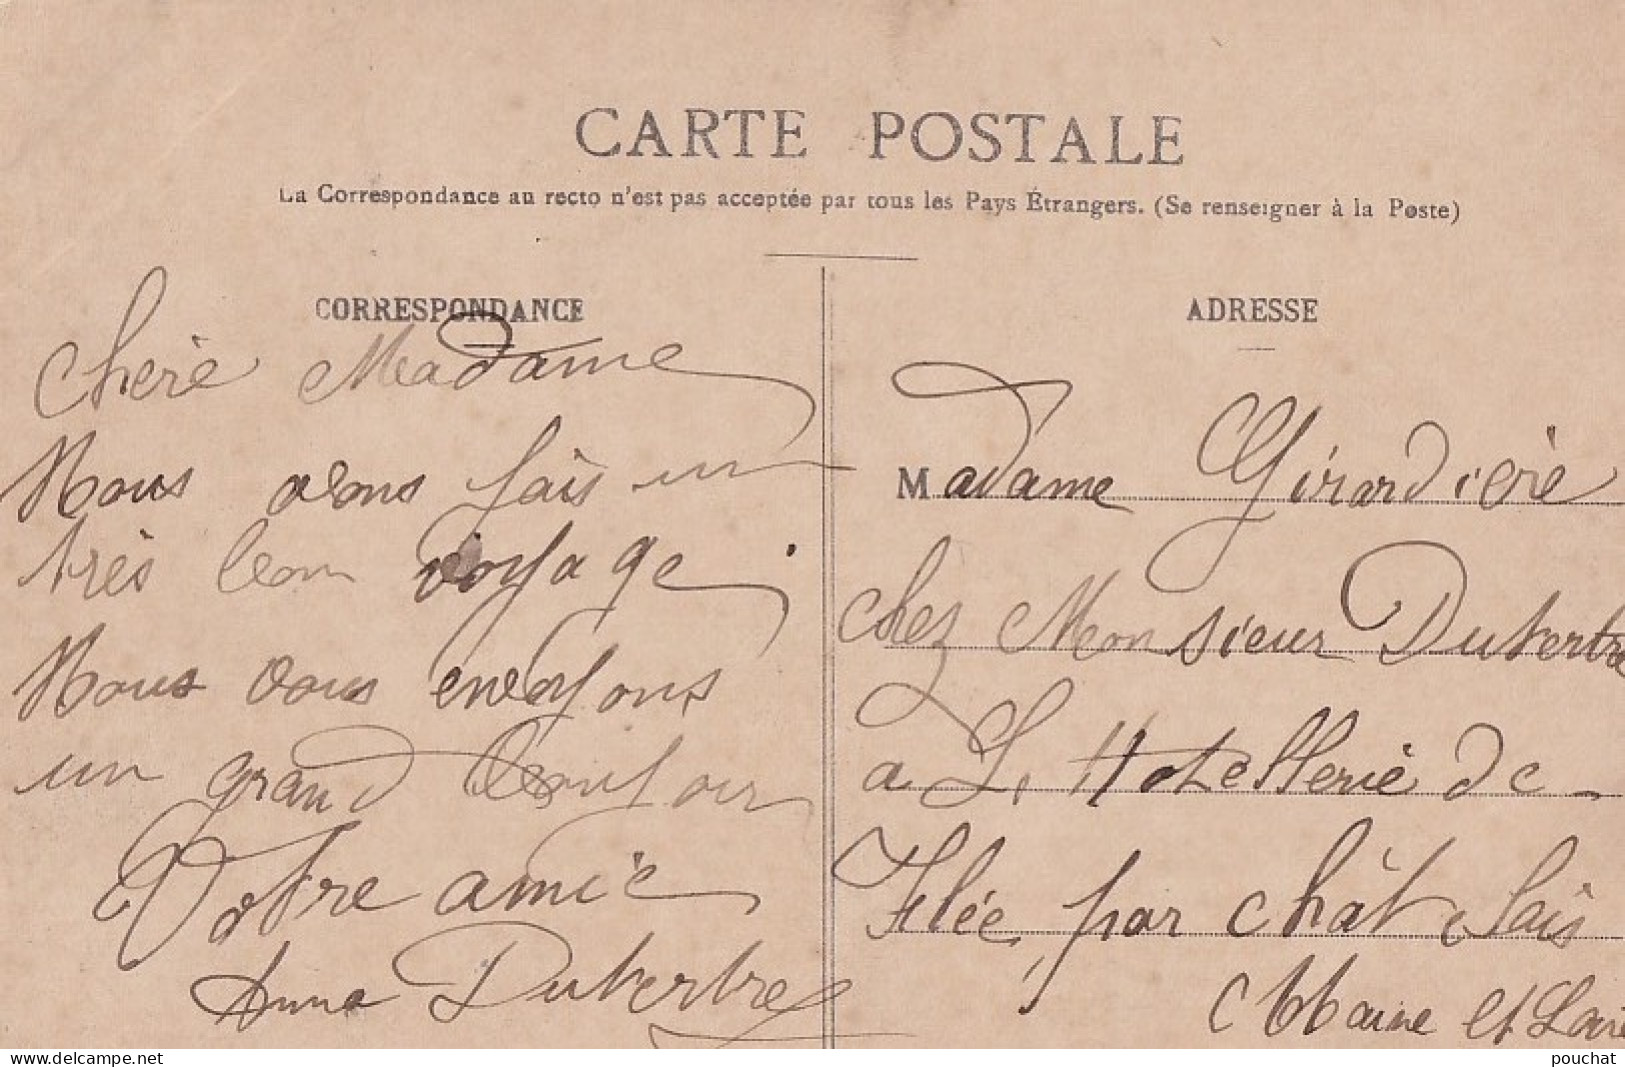 CARTE POSTALE
La Correspondance au recto n'est pas acceptée par tous les Pays Étrangers. (Se renseigner à la Poste)
CORRESPONDANCE
Chère Madame
Nous avons fais un
très bon voyage.
Nous vous envoyons
un grand bonjour
Votre amie
Anna Dutertre
ADRESSE
Madame Girardière
chez Monsieur Dutertre
a L'Hotellerie de
Flée, par Chât elais
Maine et Loire
pouchat